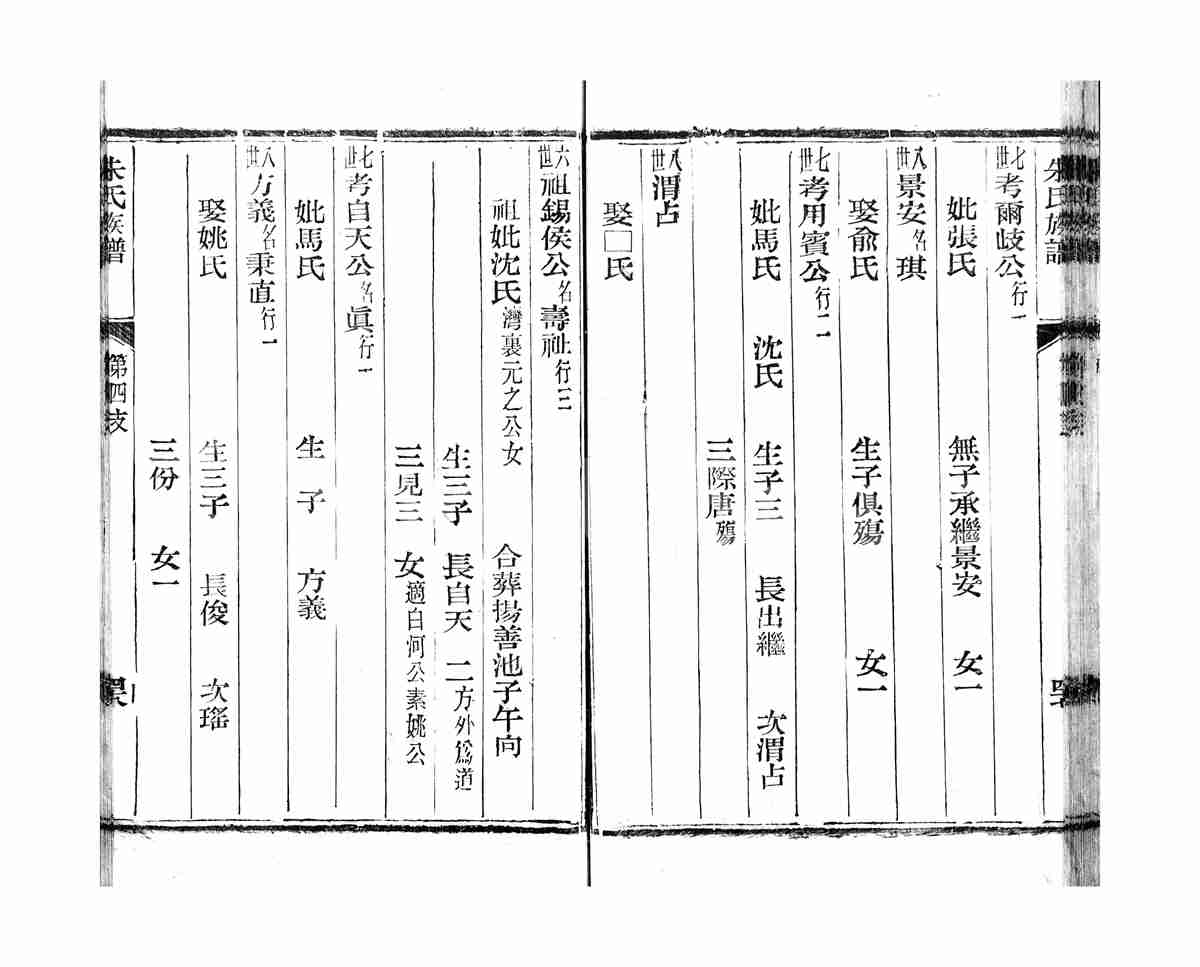 朱氏族譜
七世考爾歧公行一
妣張氏 無子承繼景安 女一
八世景安名琪
娶兪氏 生子俱殤 女一
七世考用賓公行二
妣馬氏 沈氏 生子三 長出繼 次渭占
三際唐殤
八世渭占
娶□氏
六世祖錫侯公名壽祉行三
祖妣沈氏灣裏元之公女 合葬揚善池子午向
生三子 長自天 二方外爲道
三見三 女適白河公素姚公
七世考自天公名眞行一
妣馬氏 生子 方義
八世方義名秉直行一
娶姚氏 生三子 長俊 次瑤
三份 女一
朱氏族譜 第四支